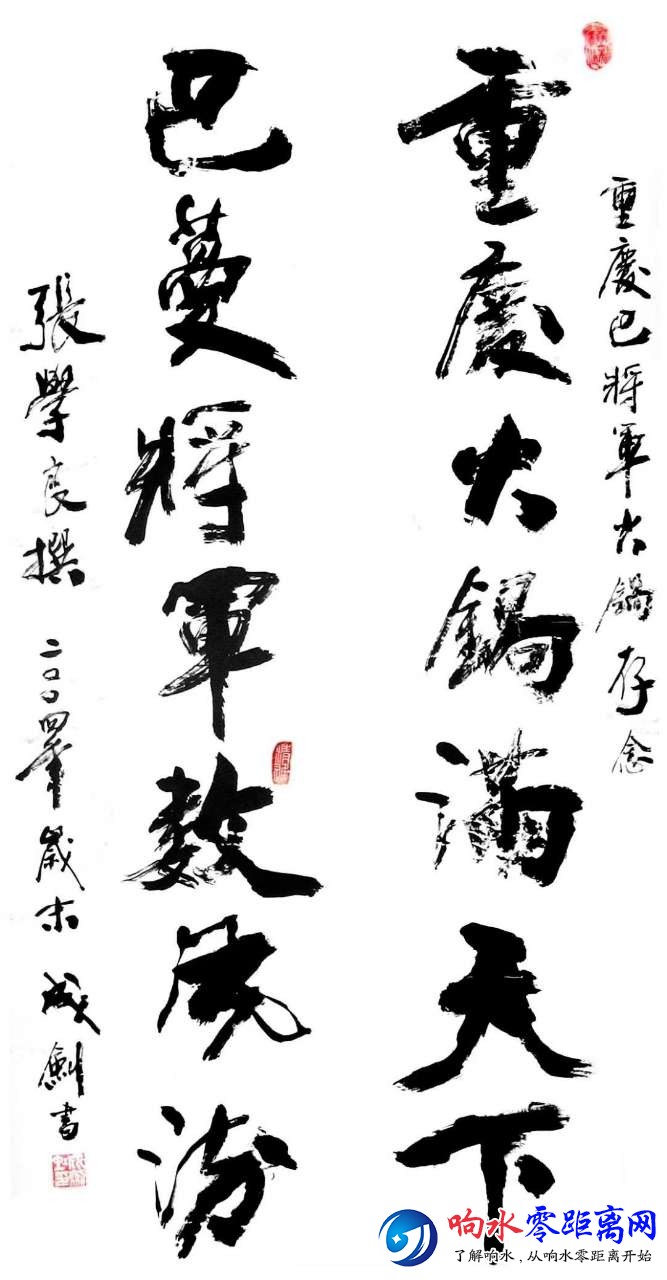 重慶巴將軍火鍋存念
重慶火鍋滿天下
巴蔓將軍數風流
張學良撰 二〇〇四年歲末 成劍書
响水零距离网
了解响水，从响水零距离开始